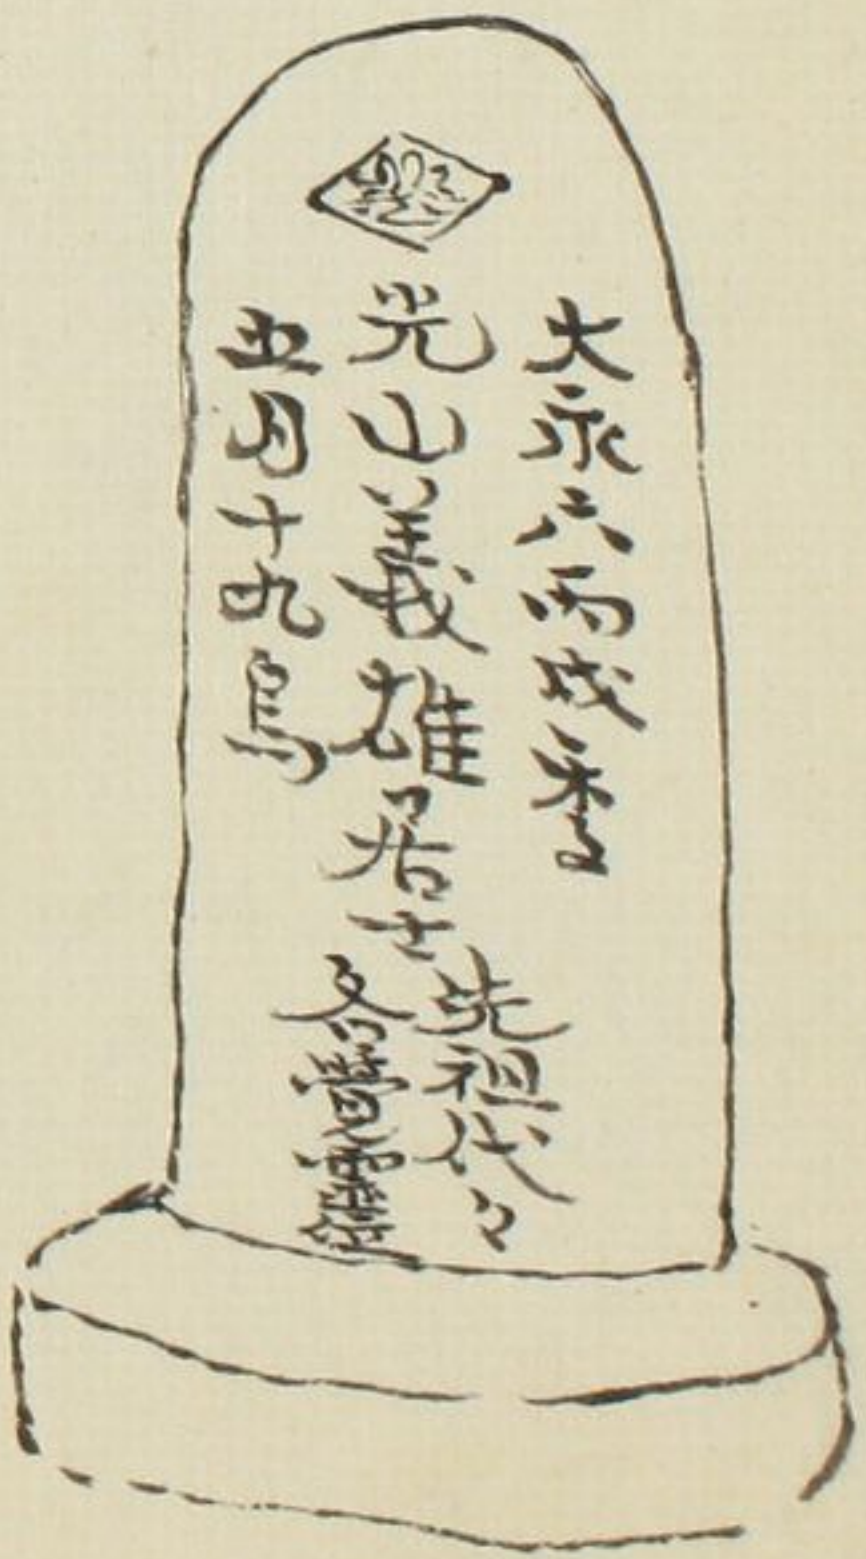 大永六丙戌季
光山義雄居士
先祖代々
各霊
五月十九烏